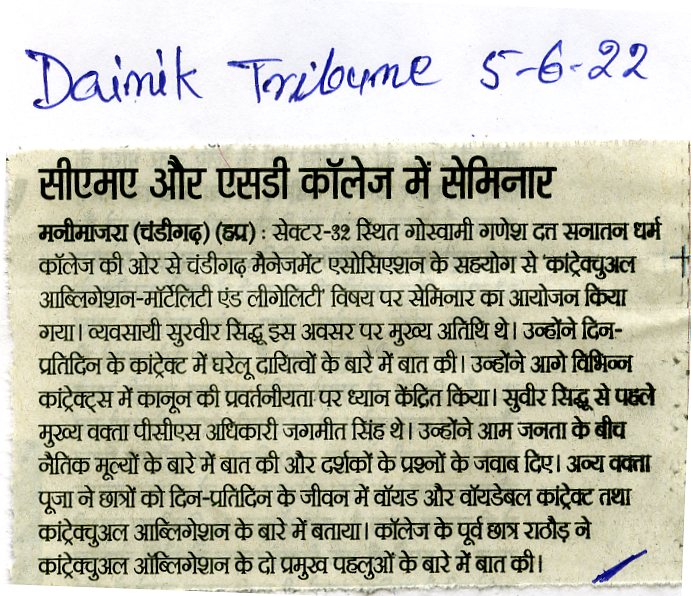 Dainik Tribune 5-6-22
सीएमए और एसडी कॉलेज में सेमिनार
मनीमाजरा (चंडीगढ़) (हप्र) : सेक्टर-32 स्थित गोस्वामी गणेश दत्त सनातन धर्म
कॉलेज की ओर से चंडीगढ़ मैनेजमेंट एसोसिएशन के सहयोग से ‘कांट्रेक्चुअल
आब्लिगेशन-मॉर्टेलिटी एंड लीगेलिटी’ विषय पर सेमिनार का आयोजन किया
गया। व्यवसायी सुरवीर सिद्धू इस अवसर पर मुख्य अतिथि थे। उन्होंने दिन-
प्रतिदिन के कांट्रेक्ट में घरेलू दायित्वों के बारे में बात की। उन्होंने आगे विभिन्न
कांट्रेक्ट्स में कानून की प्रवर्तनीयता पर ध्यान केंद्रित किया। सुवीर सिद्धू से पहले
मुख्य वक्ता पीसीएस अधिकारी जगमीत सिंह थे। उन्होंने आम जनता के बीच
नैतिक मूल्यों के बारे में बात की और दर्शकों के प्रश्नों के जवाब दिए। अन्य वक्ता
पूजा ने छात्रों को दिन-प्रतिदिन के जीवन में वॉयड और वॉयडेबल कांट्रेक्ट तथा
कांट्रेक्चुअल आब्लिगेशन के बारे में बताया। कॉलेज के पूर्व छात्र राठौड़ ने
कांट्रेक्चुअल ऑब्लिगेशन के दो प्रमुख पहलुओं के बारे में बात की।